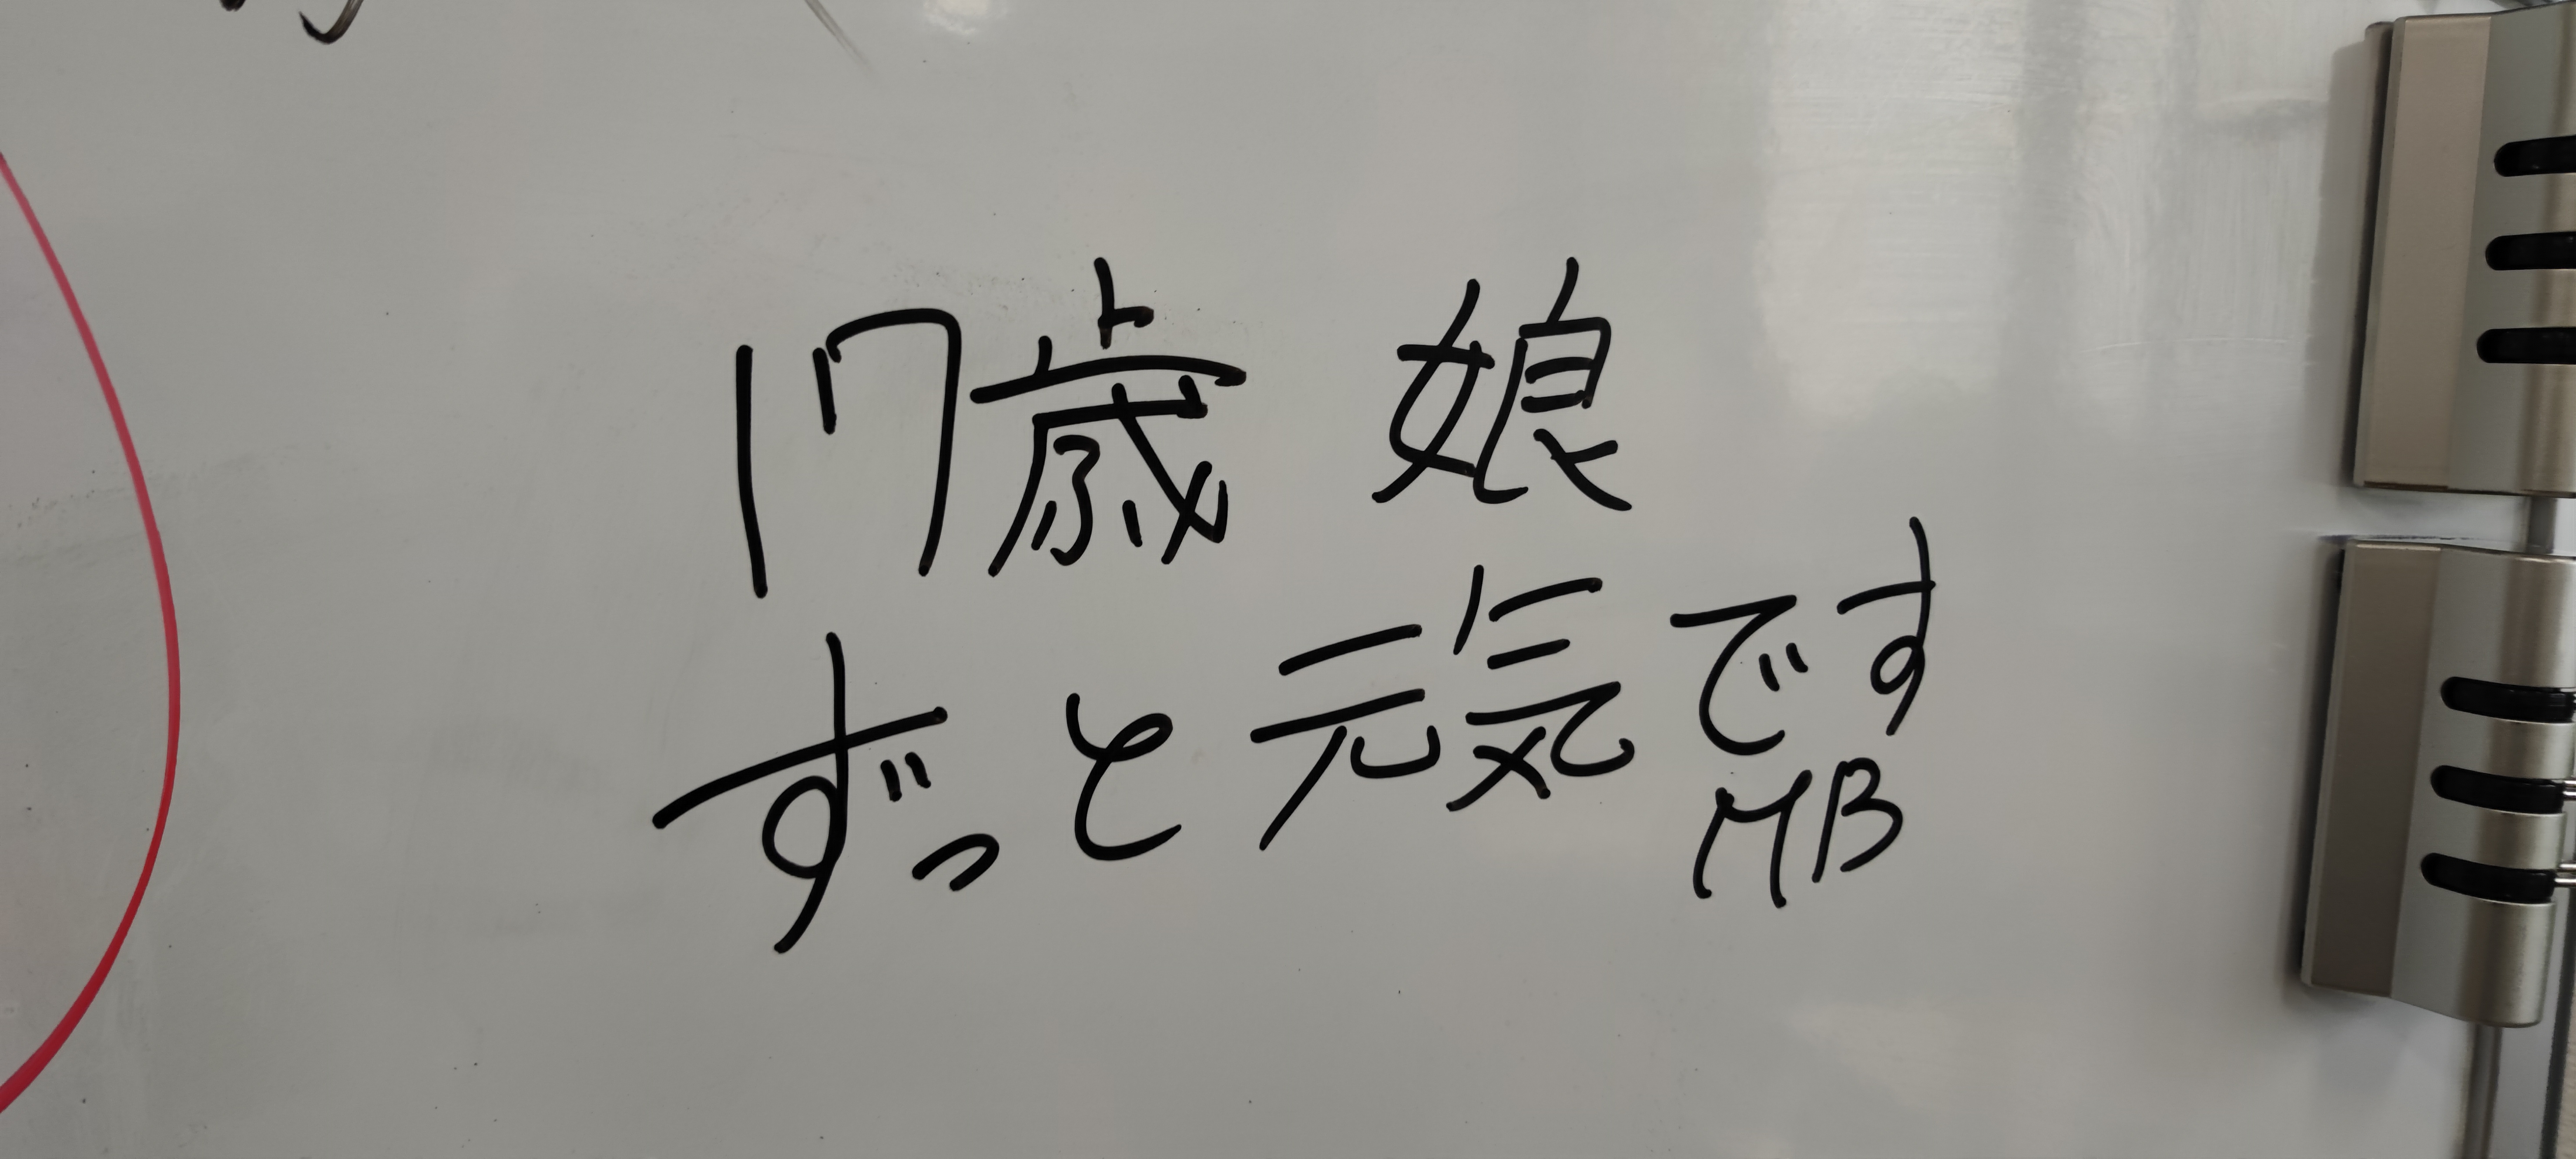 17歳 娘
ずっと元気です
MB